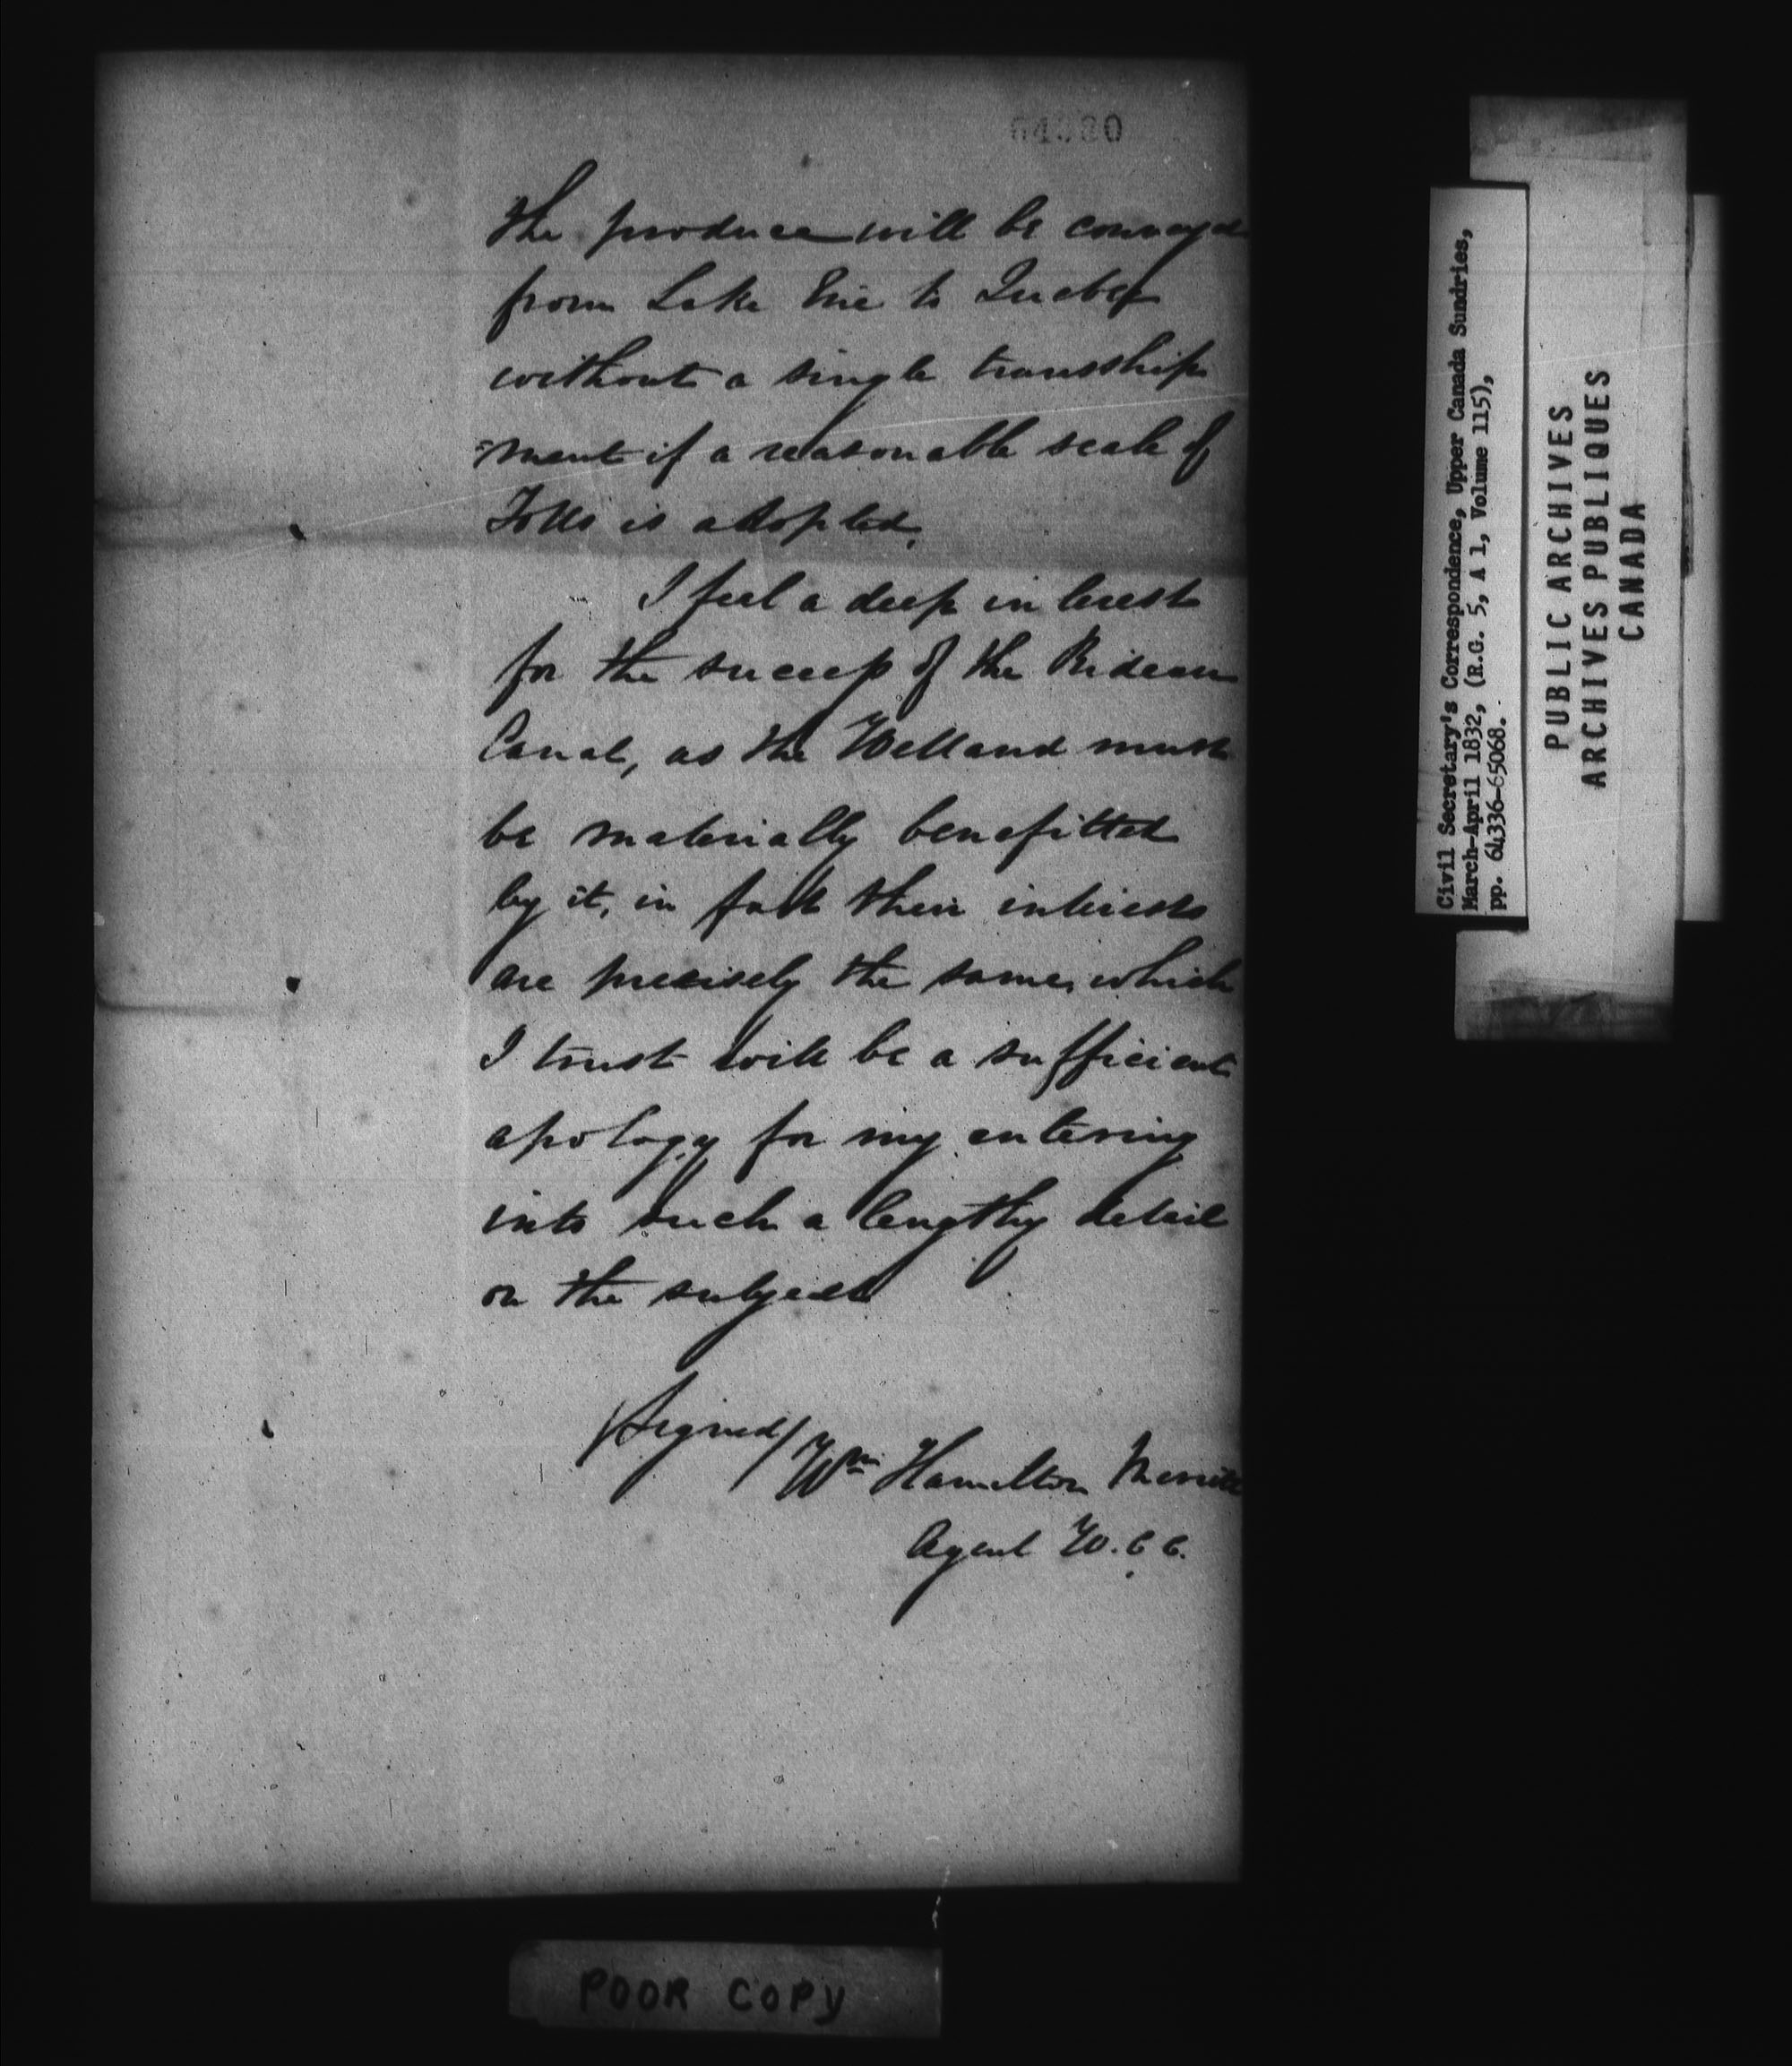 the produce will be conveyed
from Lake Erie to Quebec
without a single transship
=ment if a reasonable scale of
Tolls is adopted.
I feel a deep interest
for the success of the Rideau
Canal, as the Welland must
be materially benefitted
by it, in fact their interests
are precisely the same, which
I trust will be a sufficient
apology for my entering
into such a lengthy detail
on the subject
/Signed/ Wm Hamilton Merritt
Agent W.C.C.
Civil Secretary's Correspondence, Upper Canada Sundries,
March-April 1832, (R.G. 5, A 1, Volume 115),
pp. 64336-65068.
PUBLIC ARCHIVES
ARCHIVES PUBLIQUES
CANADA
POOR COPY